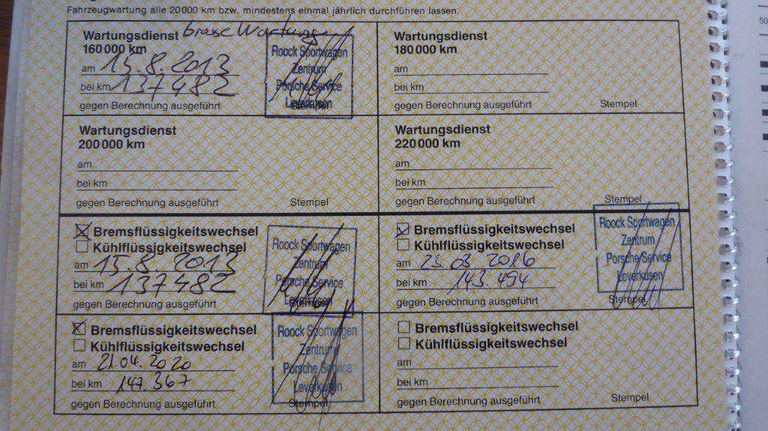 Fahrzeugwartung alle 20000 km bzw. mindestens einmal jährlich durchführen lassen.
Wartungsdienst
160 000 km
am 15.8.2013
bei km 137482
gegen Berechnung ausgeführt
Roock Sportwagen
Zentrum
Porsche Service
Leverkusen
Stempel
Wartungsdienst
180 000 km
am
bei km
gegen Berechnung ausgeführt Stempel
Wartungsdienst
200 000 km
am
bei km
gegen Berechnung ausgeführt Stempel
Wartungsdienst
220 000 km
am
bei km
gegen Berechnung ausgeführt Stempel
Bremsflüssigkeitswechsel
Kühlflüssigkeitswechsel
am 15.8.2013
bei km 137482
gegen Berechnung ausgeführt
Roock Sportwagen
Zentrum
Porsche Service
Leverkusen
Stempel
Bremsflüssigkeitswechsel
Kühlflüssigkeitswechsel
am 23.03.2016
bei km 143.494
gegen Berechnung ausgeführt
Roock Sportwagen
Zentrum
Porsche Service
Leverkusen
Stempel
Bremsflüssigkeitswechsel
Kühlflüssigkeitswechsel
am 21.04.2020
bei km 147.367
gegen Berechnung ausgeführt
Roock Sportwagen
Zentrum
Porsche Service
Leverkusen
Stempel
Bremsflüssigkeitswechsel
Kühlflüssigkeitswechsel
am
bei km
gegen Berechnung ausgeführt Stempel